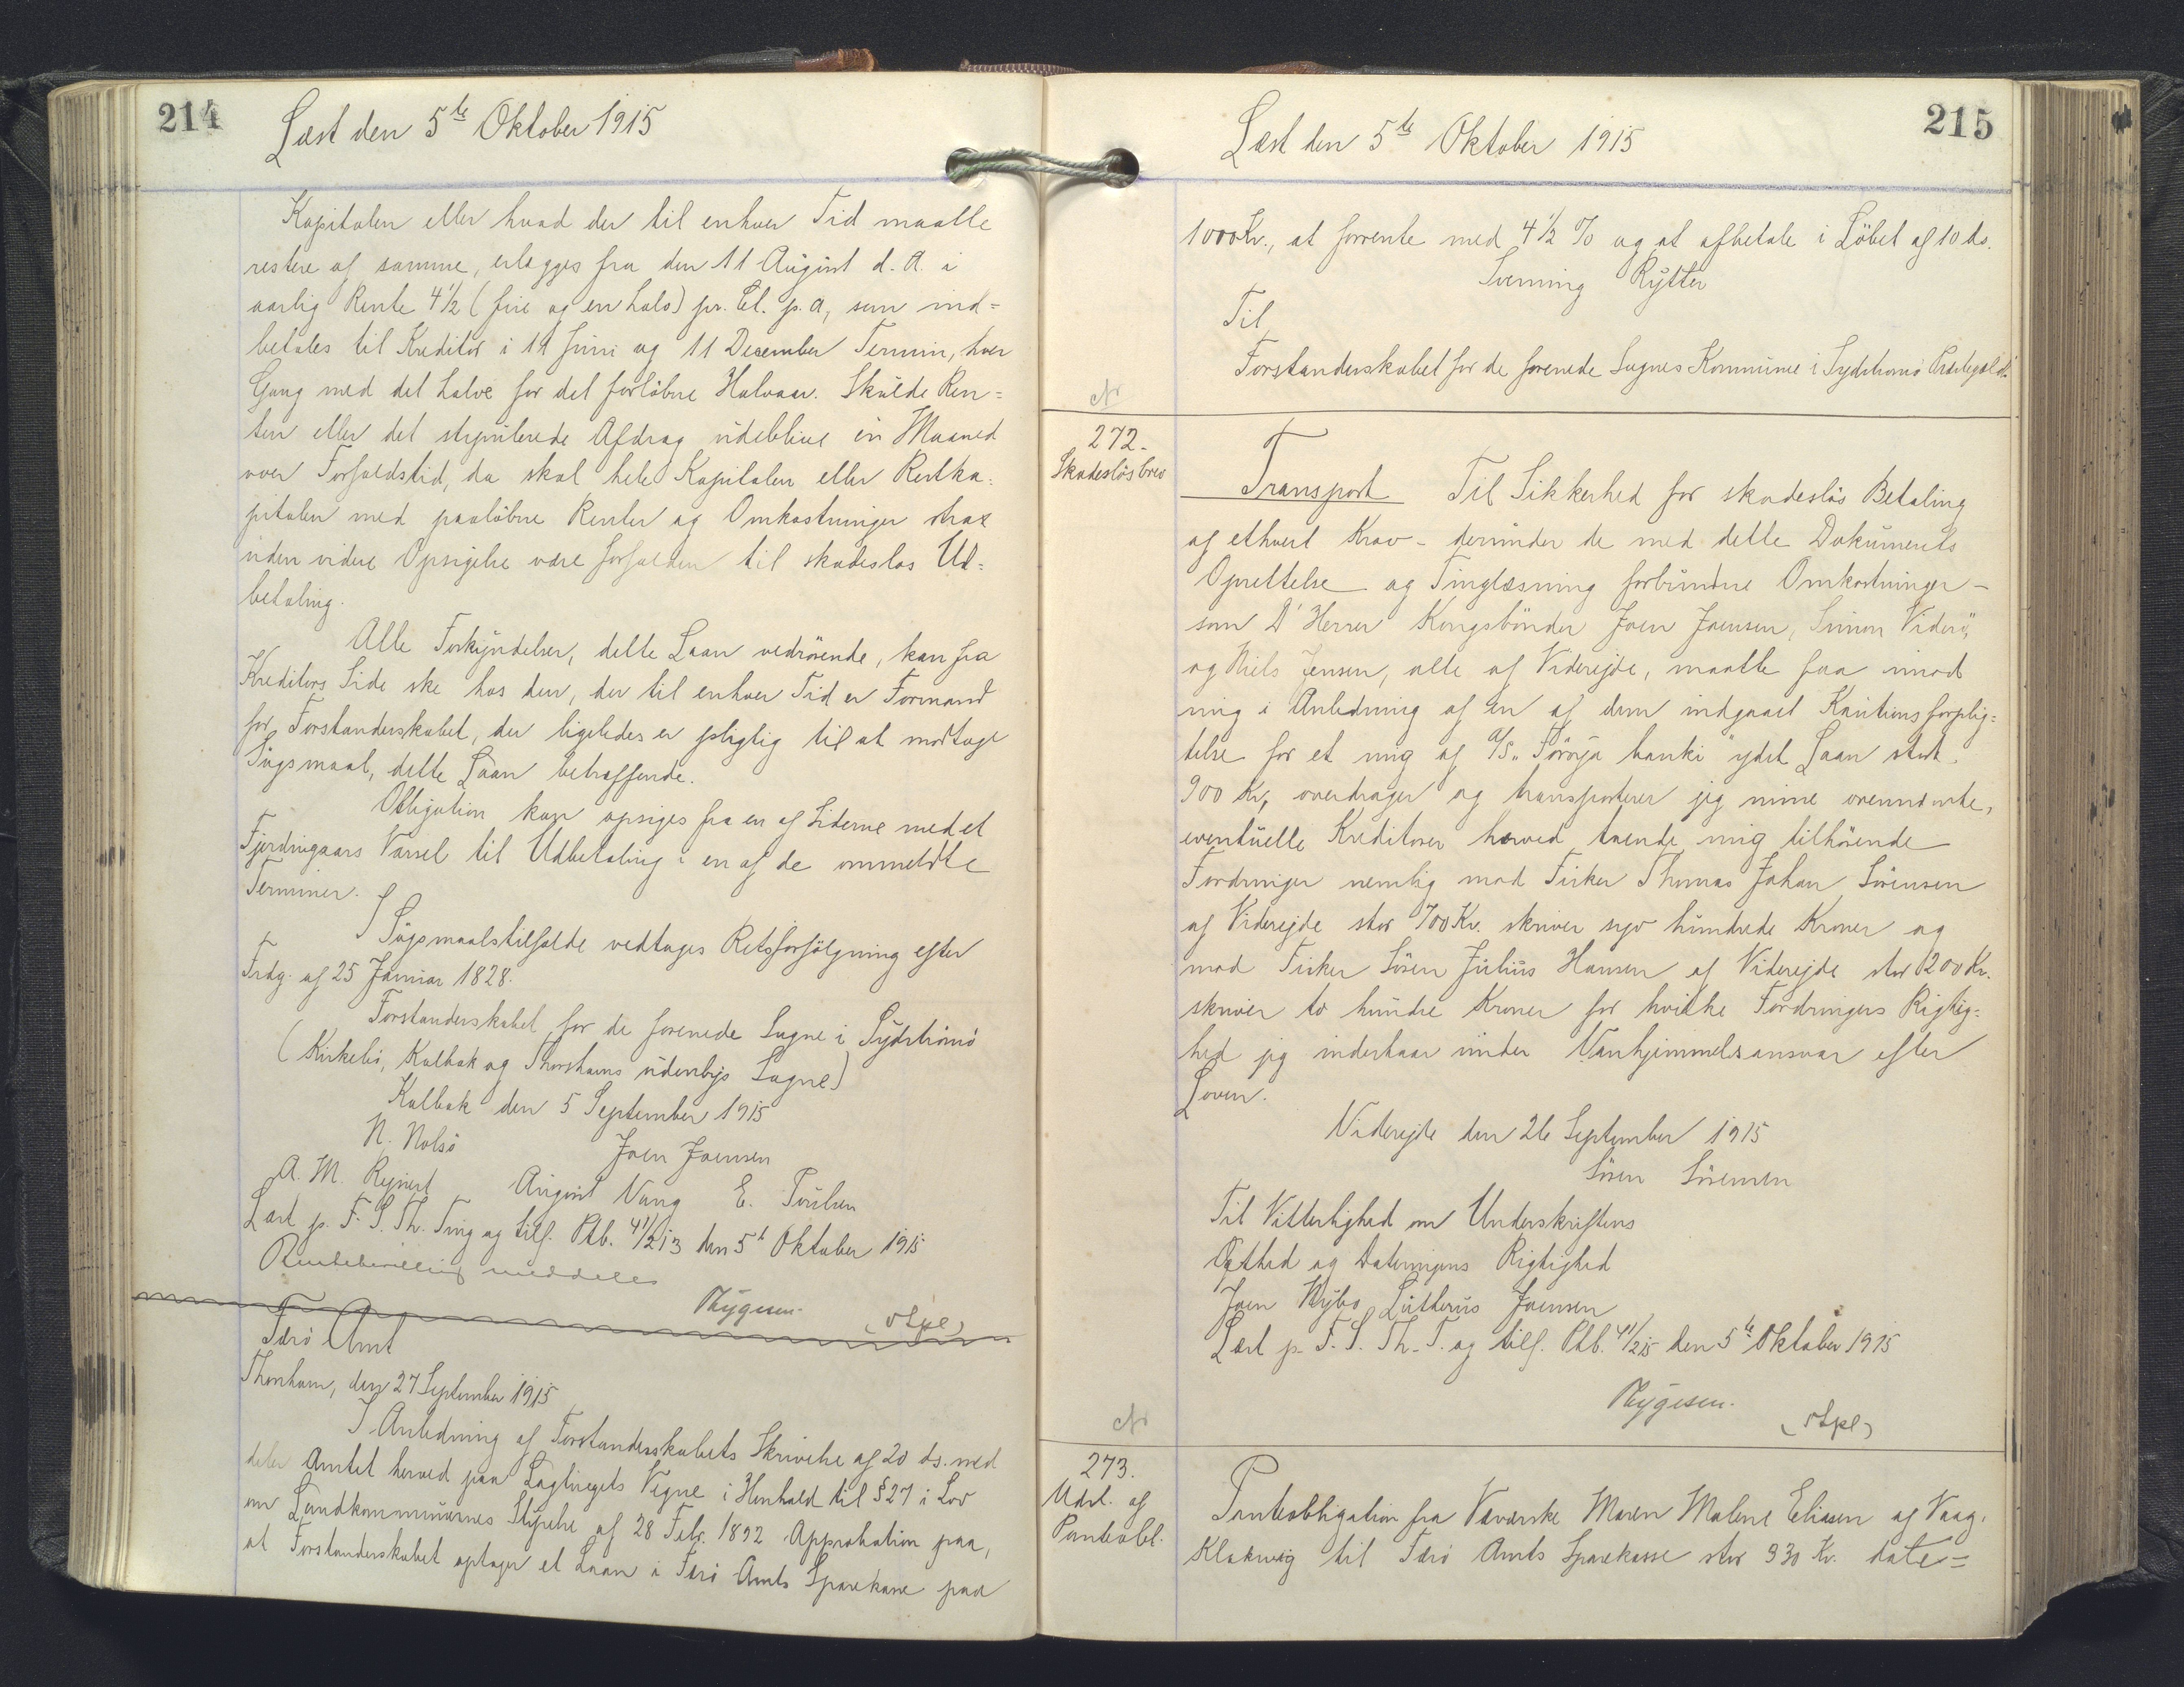 214
Læst den 5te Oktober 1915
Kapitalen eller hvad der til enhver Tid maatte
restere af samme, erlægges fra den 11 August d. A. i
aarlig Rente 4½ (fire og en halv) pr. Ct. p. a, som ind=
betales til Kreditor i 11 Juni og 11 December Termin, hver
Gang med det halve for det forløbne Halvaar. Skulde Ren=
ten eller det stipulerede Afdrag udeblive en Maaned
over Forfaldstid, da skal hele Kapitalen eller Restka=
pitalen med paaløbne Renter og Omkostninger strax
uden videre Opsigelse være forfalden til skadesløs Ud=
betaling.
Alle Forkyndelser, dette Laan vedrörende, kan fra
Kreditors Side ske hos den, der til enhver Tid er Formand
for Forstanderskabet, der ligeledes er pligtig til at modtage
Sögsmaal, dette Laan betræffende.
Obligation kan opsiges fra en af Siderne med et
Fjerdingaars Varsel til Udbetaling i en af de ommeldte
Terminer.
I Sögsmaalstilfælde vedtages Retsforfölgning efter
Frdg. af 25 Januar 1828.
Forstanderskabet for de forenede Sogne i Sydströmö
(Kirkebö, Kalbak og Thorshavns udenbys Sogne)
Kalbak den 5 September 1915
N. Nolsö Joen Joensen
A. M. Rejnert August Vang E. Poulsen
Læst p. F. S. Th. Ting og tilf. Ptb. 41/213 den 5t Oktober 1915
Rentebevilling meddeles
Thygesen. (Stpl)
Færö Amt
Thorshavn, den 27 September 1915
I Anledning af Forstanderskabets Skrivelse af 20 ds. med
deler Amtet herved paa Lagtingets Vegne i Henhold til § 27 i Lov
om Landkommunernes Styrelse af 28 Febr. 1892 Approbation paa,
at Forstanderskabet optager et Laan i Færö Amts Sparekasse paa
215
Læst den 5te Oktober 1915
1000 Kr., at forrente med 4½ % og at afbetale i Löbet af 10 do.
Svenning Rytter
Til
Forstanderskabet for de forenede Sognes Kommune i Sydströmö Præstegæld.
Nr
272.
Skadeslösbrev
Transport Til Sikkerhed for skadeslös Betaling
af ethvert Krav - derunder de med dette Dokuments
Oprettelse og Tinglæsning forbundne Omkostninger -
som D'Herrer Kongsbönder Joen Joensen, Simon Viderö,
og Niels Jensen, alle af Viderejde, maatte faa imod
mig i Anledning af en af dem indgaaet Kautionsforplig=
telse for et mig af A/S "Föroya banki" ydet Laan stort
900 Kr, overdrager og transporterer jig mine ovennævnte,
eventuelle Kreditorer herved tvende mig tilhörende
Fordringer nemlig mod Fisker Thomas Johan Sörensen
af Viderejde stor 700 Kr. skriver syv hundrede Kroner og
mod Fisker Sören Julius Hansen af Viderejde stor 200 Kr.
skriver to hundre Kroner for hvilke Fordringers Rigtig=
hed jig inderhaar under Vanhjimmelsansvar efter
Loven.
Viderejde den 26 September 1915
Sören Sörensen
Til Vitterlighed om Underskriftens
Ægthed og Dateringens Rigtighed
Joen Nybo Lutherus Joensen
Læst p. F. S. Th. T. og tilf. Ptb. 41/215 den 5te Oktober 1915
Thygesen. (Stpl)
Nr
273.
Udsl. af
Panteobl.
Panteobligation fra Væverske Maren Malene Eliasen af Vaag,
Klaksvig til Færö Amts Sparekasse stor 930 Kr. date=